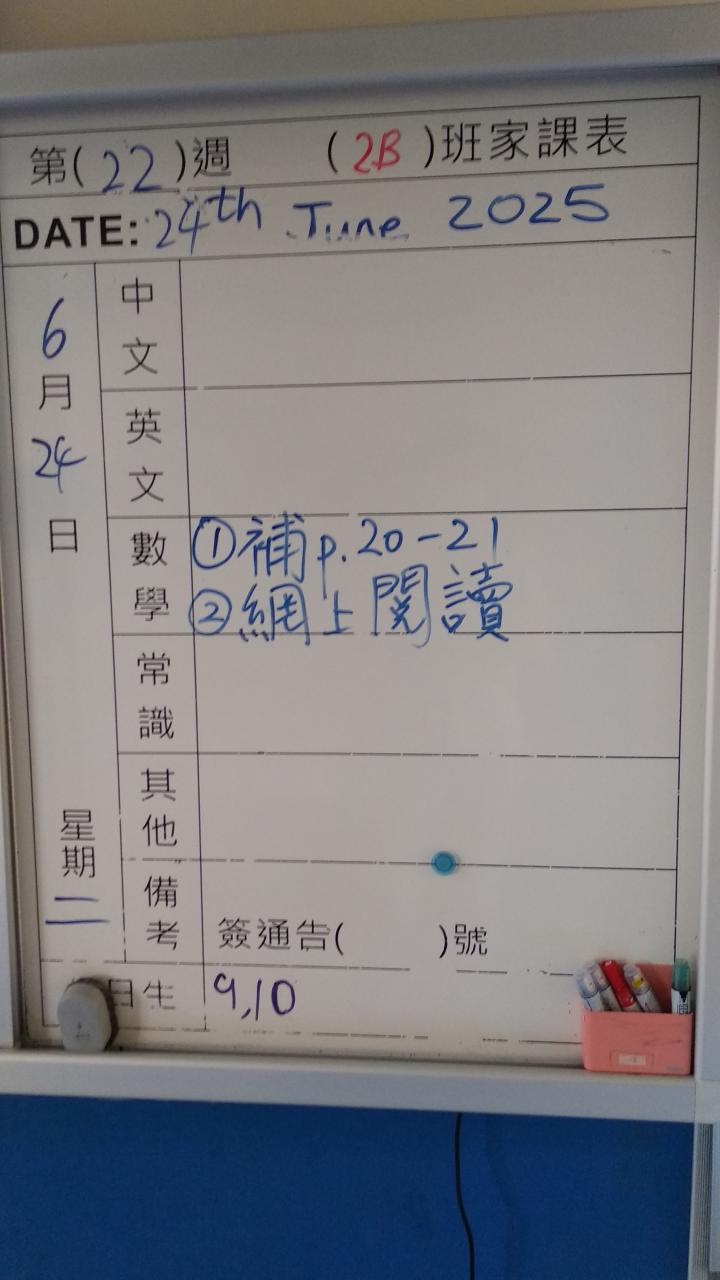 第(22)週 (2B)班家課表
DATE: 24th June 2025
6月24日
星期二
中文
英文
數學
①補p.20-21
②網上閱讀
常識
其他
備考
簽通告( )號
日生
9,10